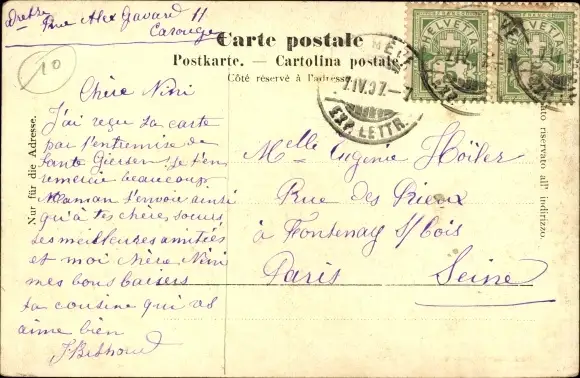 Adresse Rue Alex Gavard 11
Carouge
Carte postale
Postkarte. — Cartolina postale.
Côté réservé à l'adresse.
Nur für die Adresse.
riservato all' indirizzo.
10
HELVETIA
HELVETIA
7.IV.07.-7
EXP. LETTR.
Chère Nini
J'ai reçu ta carte
par l'entremise de
tante je t'en
remercie beaucoup
Maman t'envoie ainsi
qu'à tes chères soeurs
ses meilleures amitiés
et moi chère Nini
mes bons baisers
ta cousine qui
aime bien
Melle Eugénie
Rue des
à Fontenay s/ Bois
Paris Seine